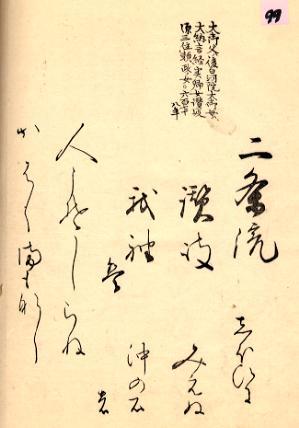 99
大納言経実卿女讃岐
源三位頼政女
二条院
讃岐
我袖
は
しほひに
みえぬ
沖の石
の
人こそしらね
かはく満もなし